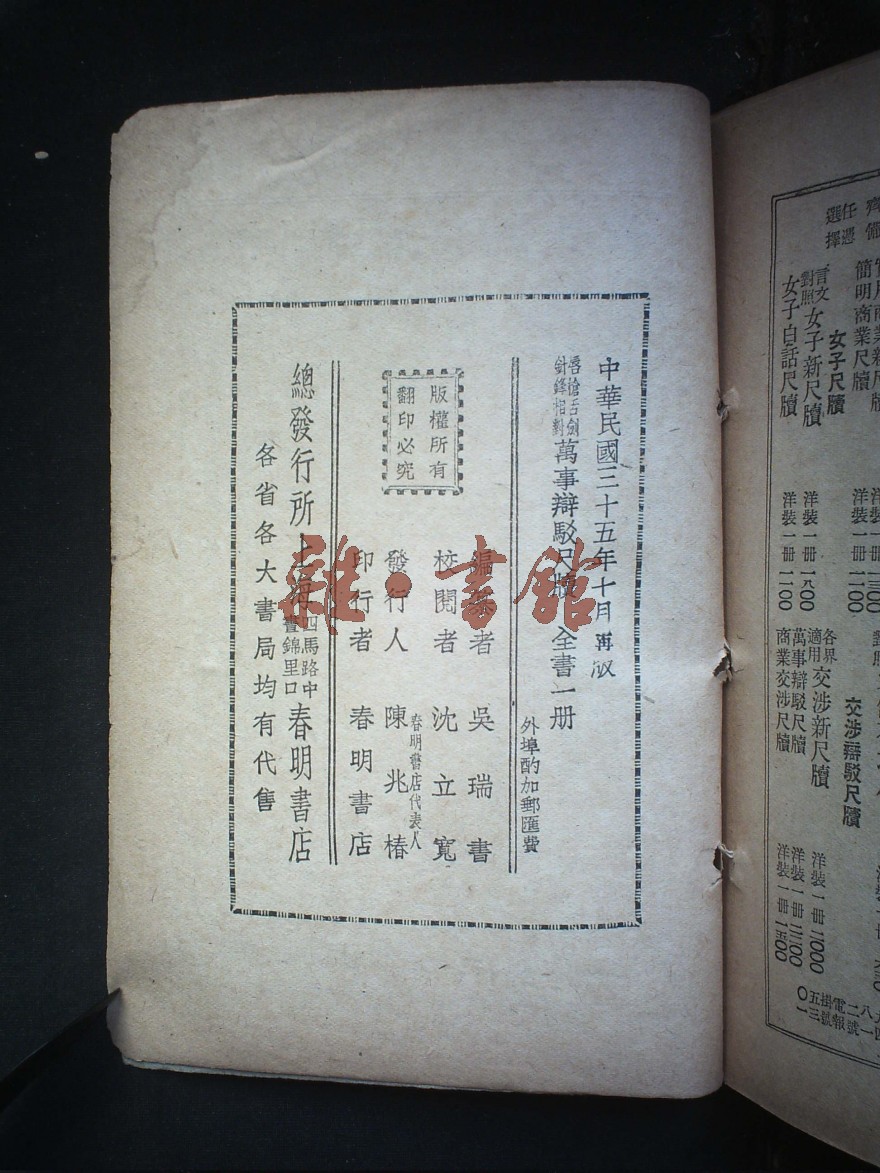 齊備
任憑
選擇
簡明商業尺牘 洋裝一冊 一二〇〇
女子尺牘
言文
對照
女子新尺牘 洋裝一冊 一八〇〇
女子白話尺牘 洋裝一冊 一二〇〇
交涉辯駁尺牘
各界
適用
交涉新尺牘 洋裝一冊 二〇〇〇
萬事辯駁尺牘 洋裝一冊 三二〇〇
商業交涉尺牘 洋裝一冊 一五〇〇
中華民國三十五年十月再版
唇槍舌劍
針鋒相對
萬事辯駁尺牘 全書一册
外埠酌加郵匯費
版權所有
翻印必究
編纂者 吳瑞書
校閱者 沈立寬
發行人 春明書店代表人 陳兆椿
印行者 春明書店
總發行所 上海
四馬路中
晝錦里口
春明書店
各省各大書局均有代售
雜·書館